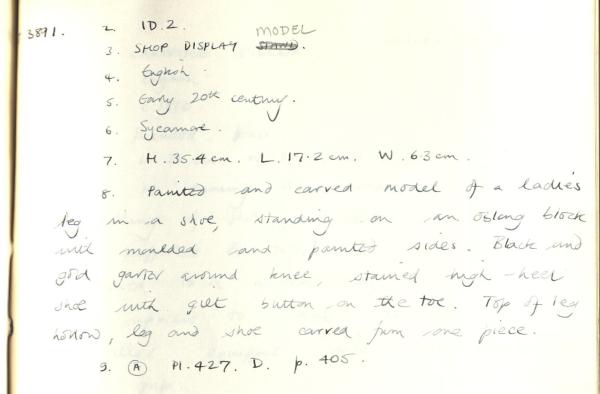 3891. 2. 1D.2. MODEL
3. SHOP DISPLAY STAND.
4. English.
5. Early 20th century.
6. Sycamore.
7. H. 35.4 cm. L. 17.2 cm. W. 63 cm.
8. Painted and carved model of a ladies
leg in a shoe, standing on an oblong block
with moulded and painted sides. Black and
gold garter around knee, stained high-heel
shoe with gilt button on the toe. Top of leg
hollow, leg and shoe carved from one piece.
9. A Pl. 427. D. p. 405.